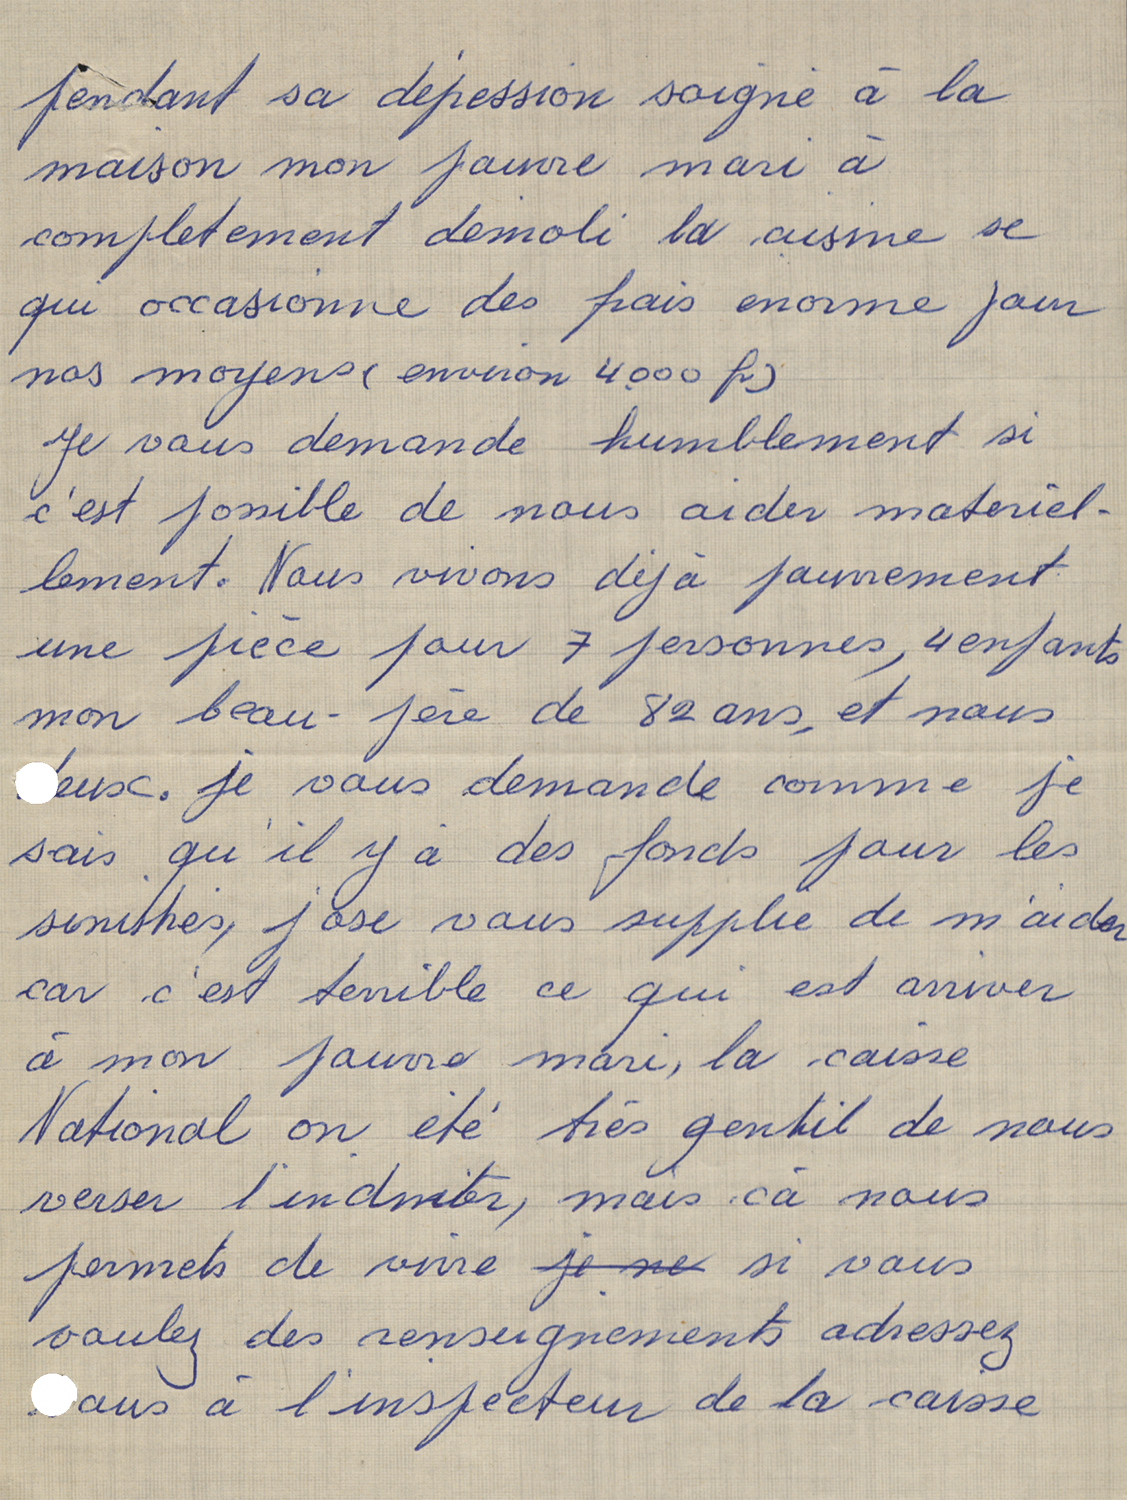 pendant sa dépession soigné à la
maison mon pauvre mari à
completement démoli la cuisine se
qui occasionne des frais enorme pour
nos moyens ( environ 4000 fr )
Je vous demande humblement si
c'est possible de nous aider matériel-
lement. Nous vivons déjà pauvrement
une pièce pour 7 personnes, 4 enfants
mon beau-père de 82 ans, et nous
deux. je vous demande comme je
sais qu'il y à des fonds pour les
sinistrés, j'ose vous supplie de m'aider
car c'est terrible ce qui est arriver
à mon pauvre mari, la caisse
National on été très gentil de nous
verser l'indmitér, mais cà nous
permets de vivre je ne si vous
voulez des renseignements adressez
vous à l'inspecteur de la caisse